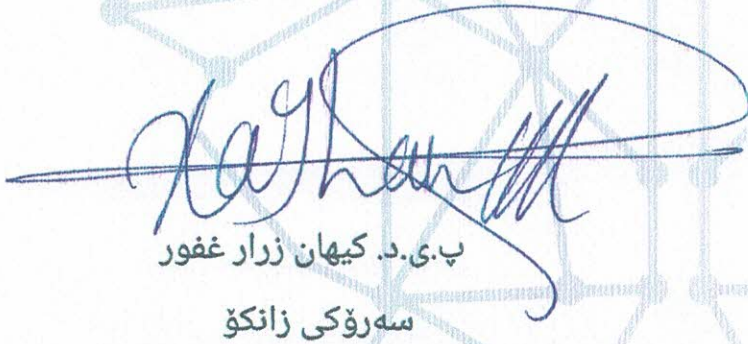 پ.ی.د. کیهان زرار غفور
سەرۆکی زانکۆ